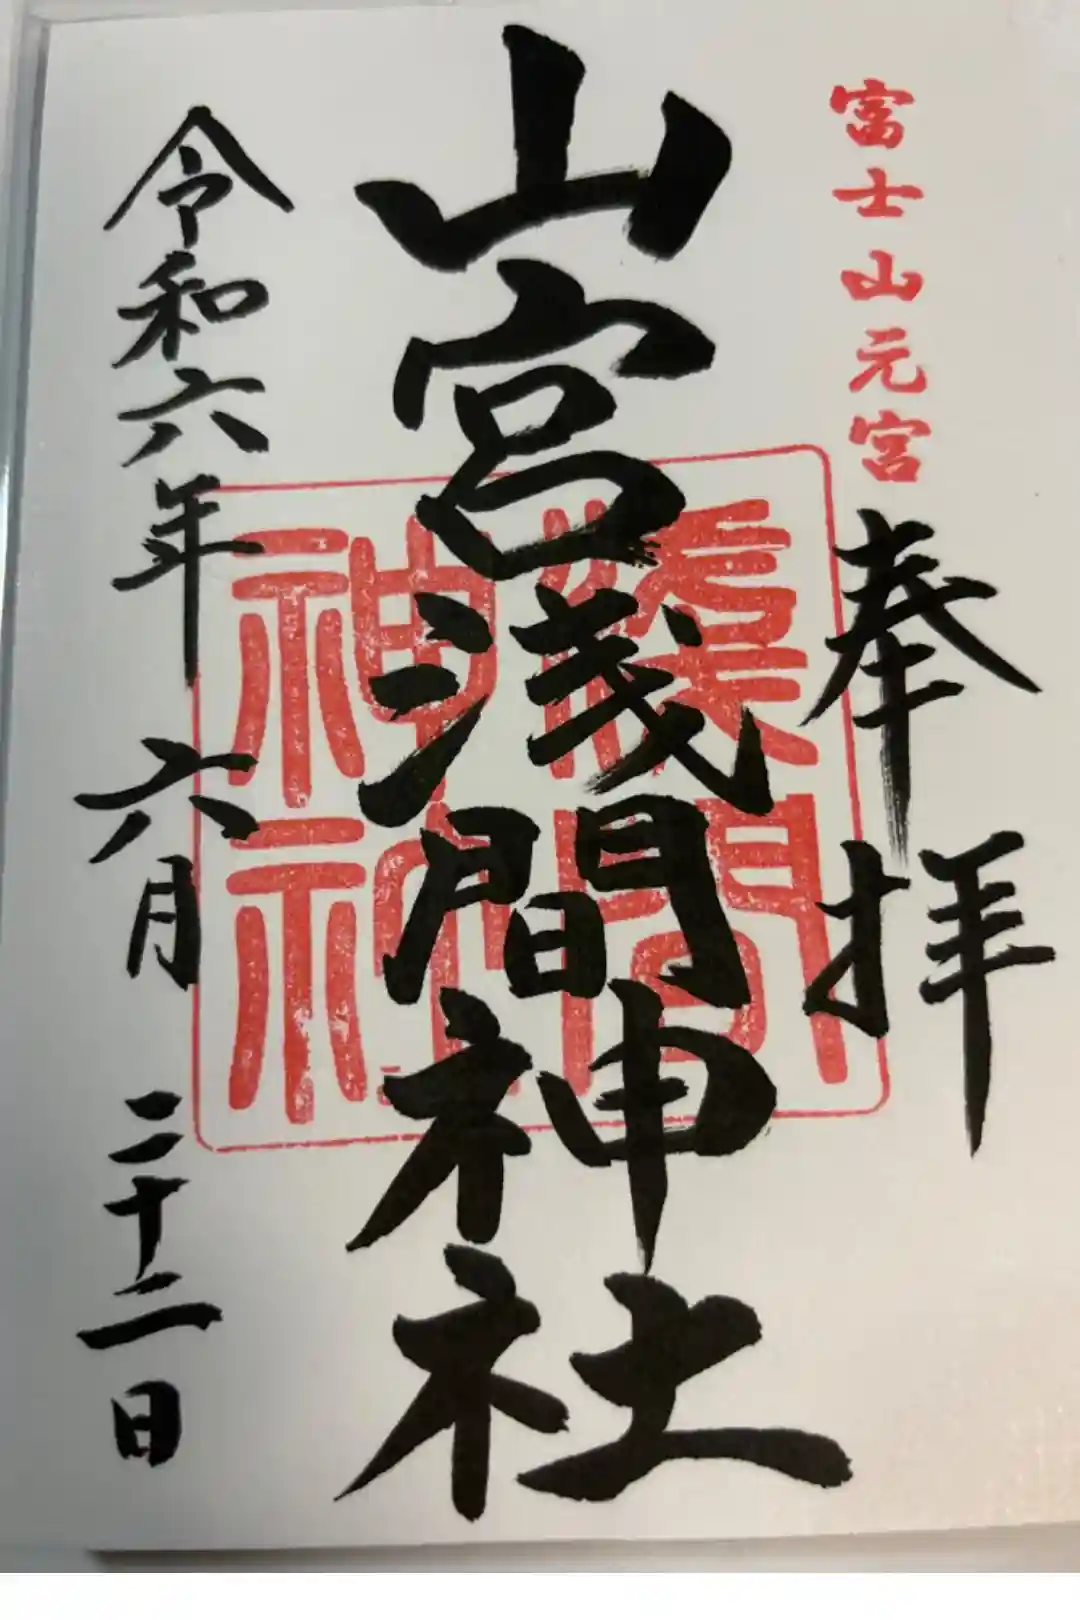 富士山元宮
奉拝
山宮浅間神社
淺間神社
令和六年六月二十二日